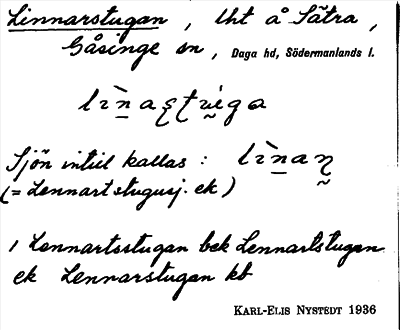 Linnarstugan, lht å Sätra,
Gåsinge sn, Daga hd, Södermanlands l.
Sjön intill kallas:
(= Lennartstugusj. ek)
1 Lennartsstugan bek Lennartstugan
ek Lennarstugan kb
KARL-ELIS NYSTEDT 1936